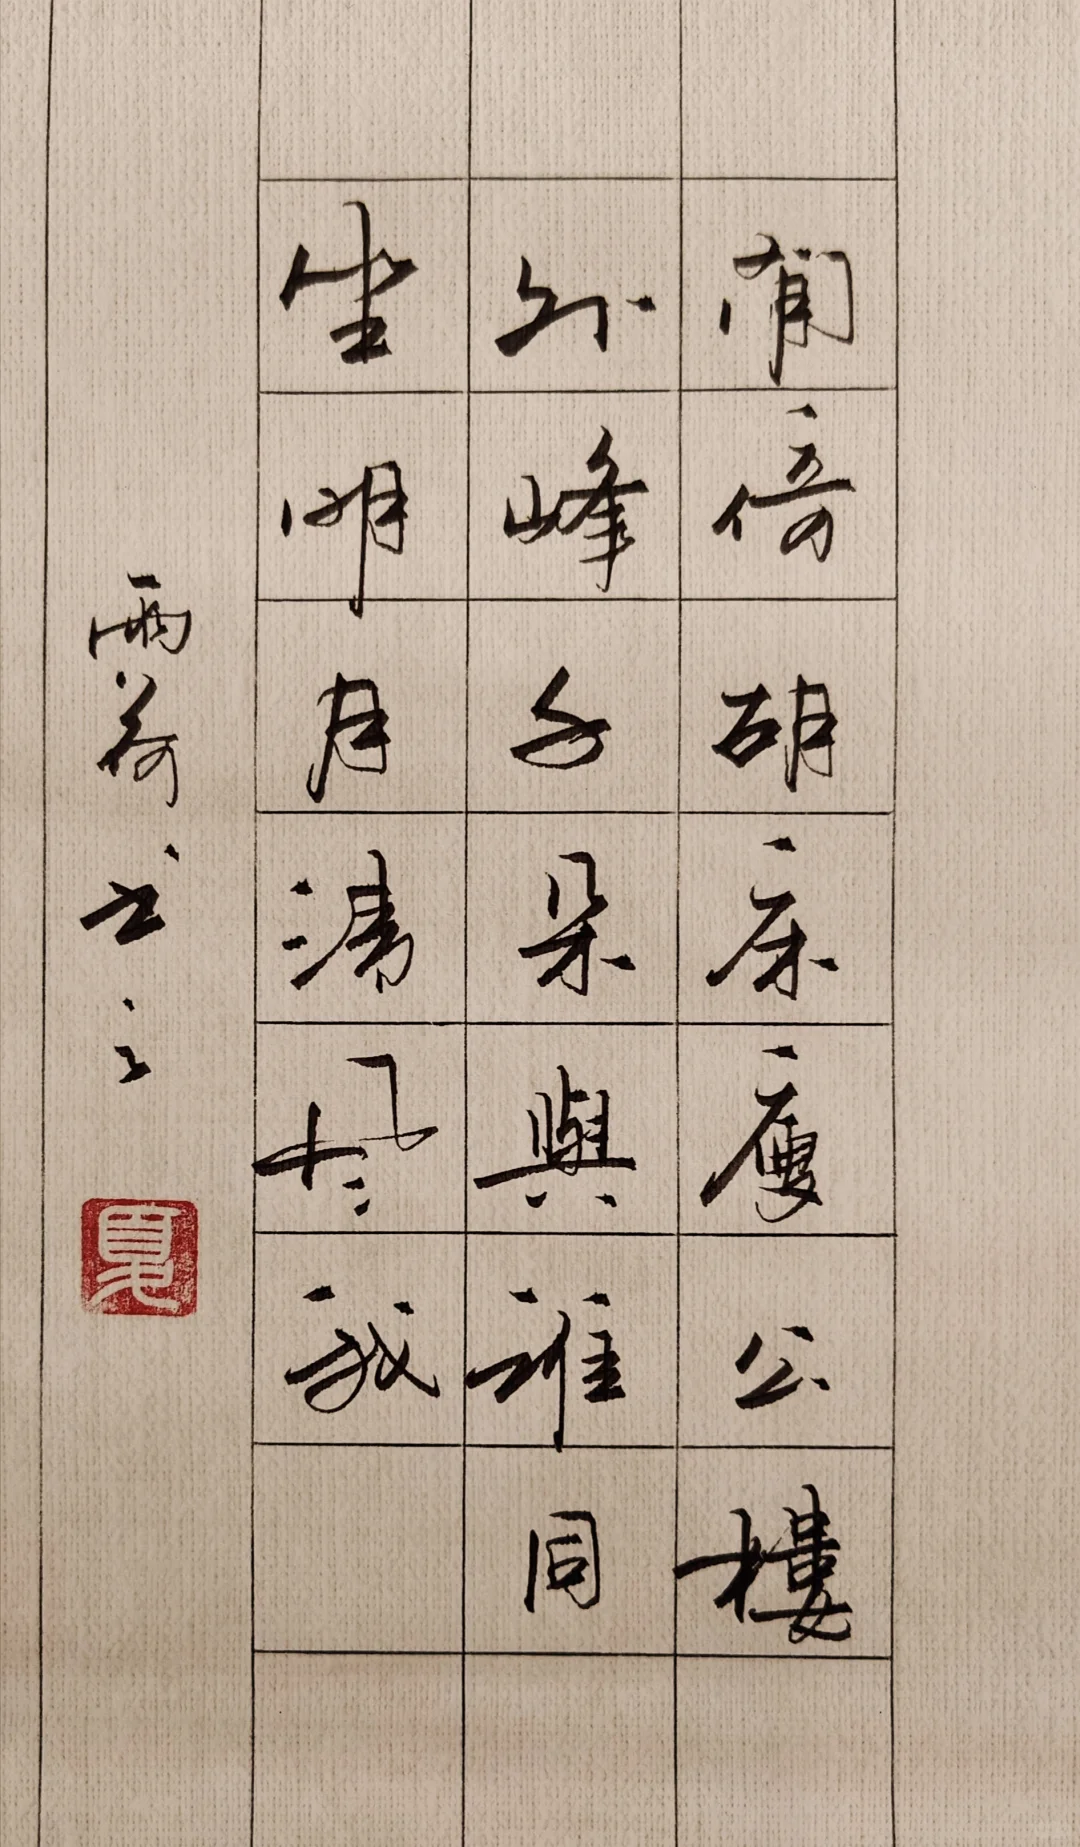 閒倚胡床庾公樓
外峰千朵與誰同
坐明月清風我
雨荷书之
夏